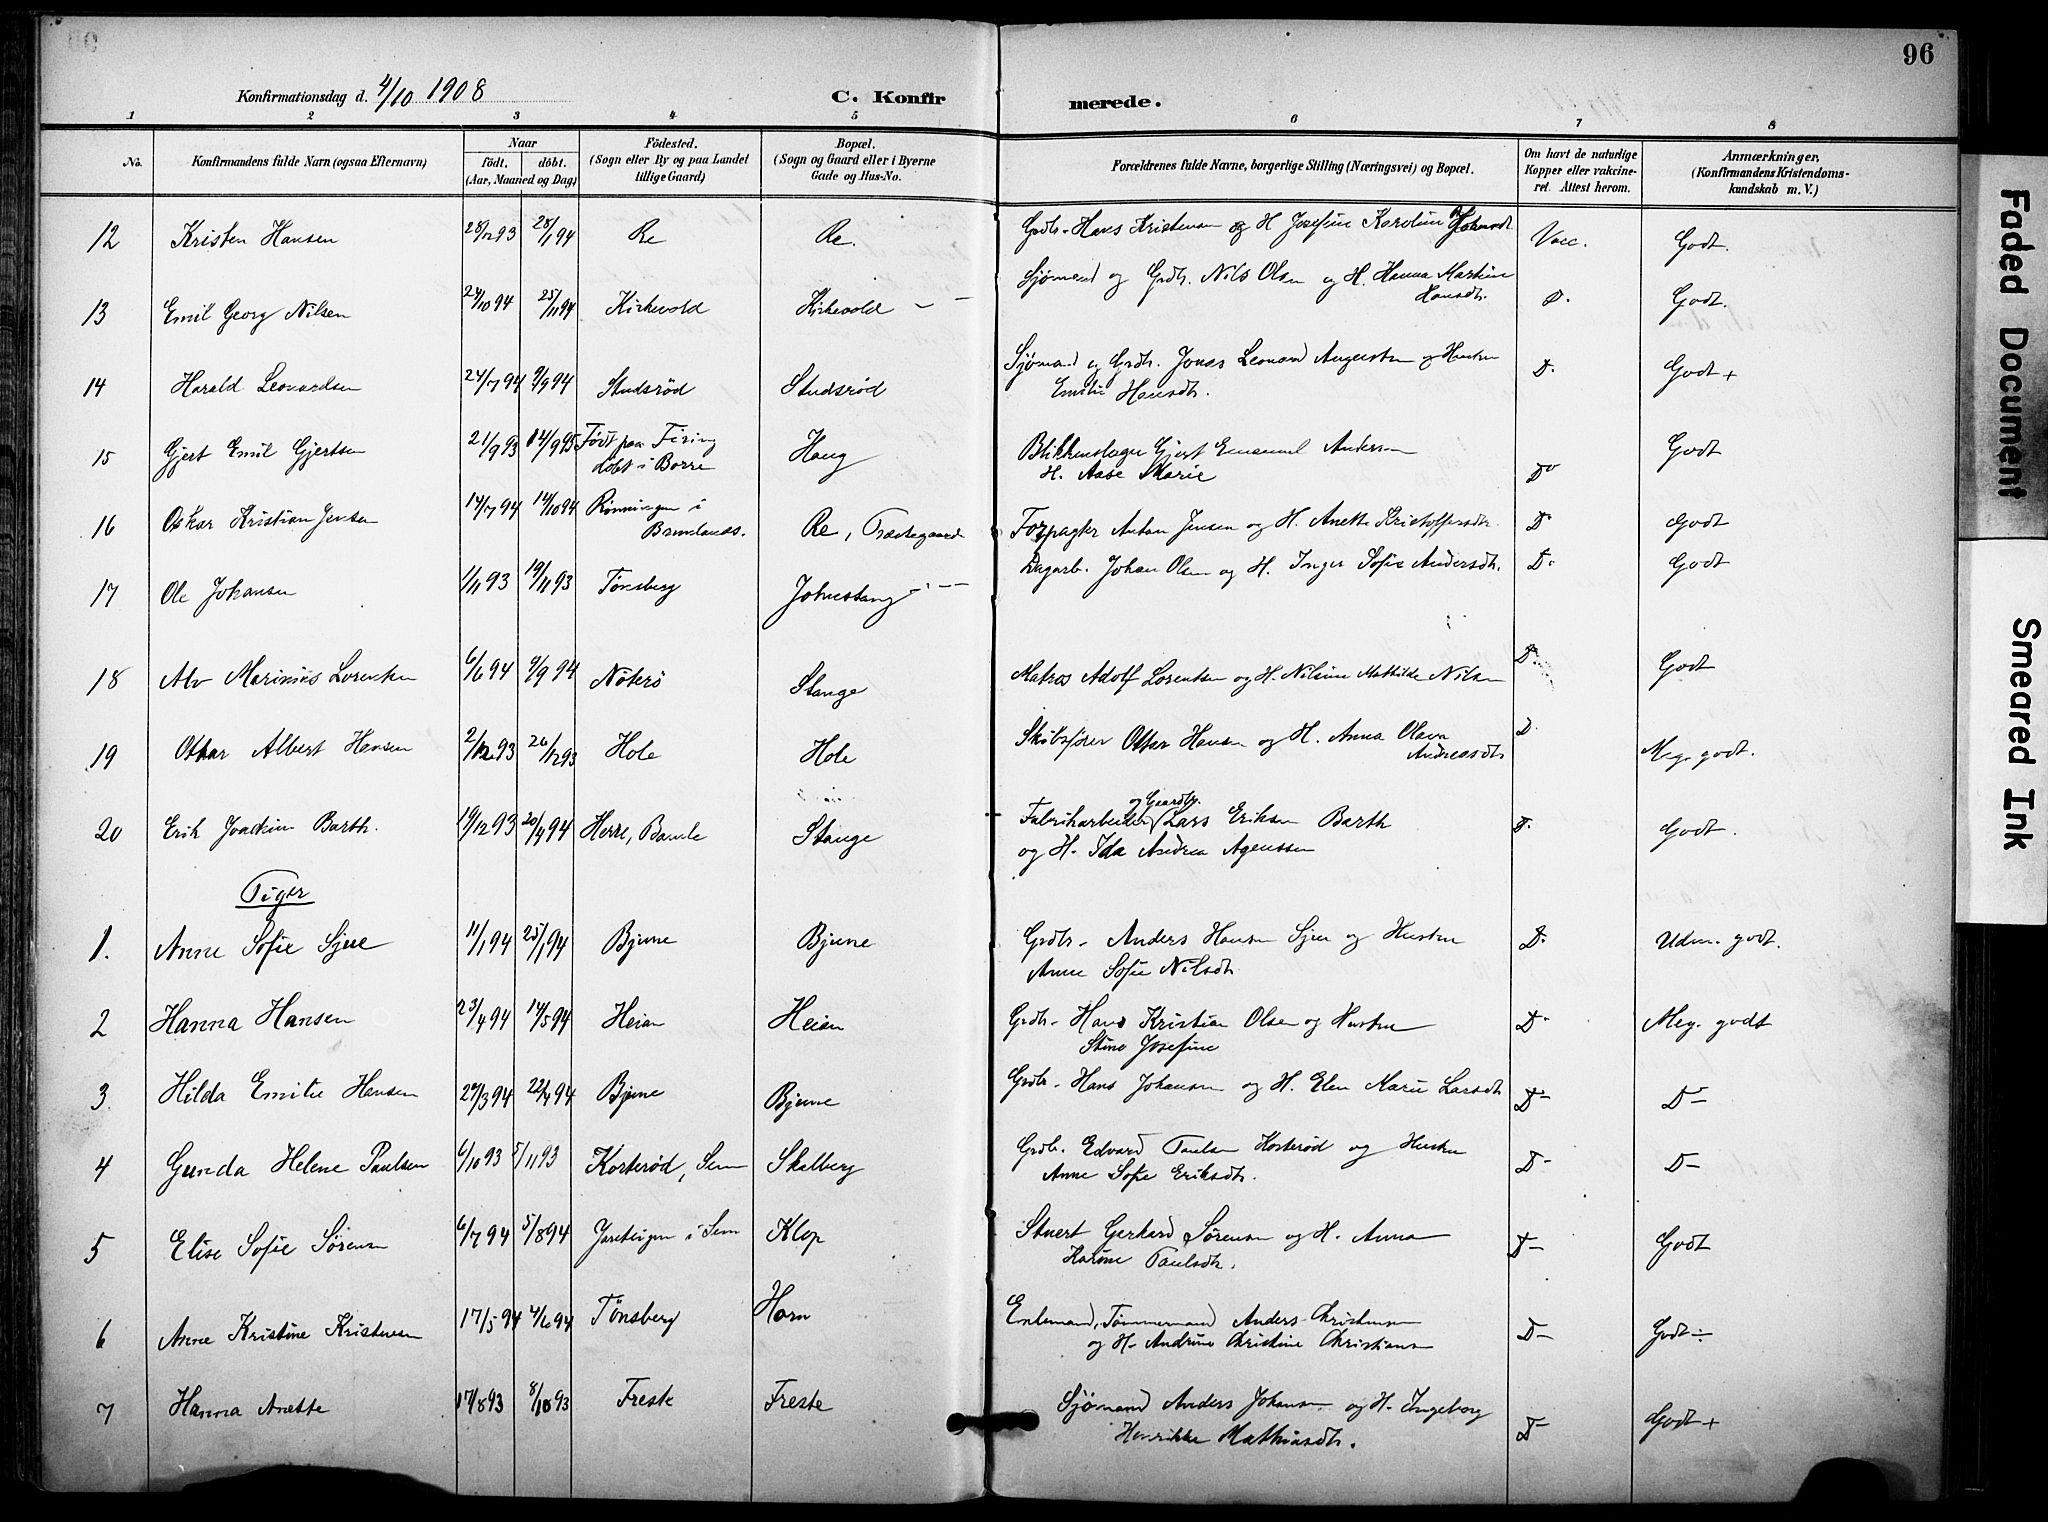 96
Konfirmationsdag d. 4/10 1908
C. Konfirmerede.
1 2 3 4 5 6 7 8
No.
Konfirmandens fulde Narn (ogsaa Efternavn)
Naar
födt. döbt.
(Aar, Maaned og Dag)
Födested.
(Sogn eller By og paa Landet
tillige Gaard)
Bopæl.
(Sogn og Gaard eller i Byerne
Gade og Hus-No.
Forældrenes fulde Navne, borgerlige Stilling (Næringsvei) og Bopæl.
Om havt de naturlige
Kopper eller vakcine-
ret. Attest herom.
Anmærkninger.
(Konfirmandens Kristendoms-
kundskab m. V.)
12 Kristen Hansen 28/12 93 28/1 94 Re Re. Grdbr. Hans Kristensen og H. Josefine Karoline Vacc. Godt.
13 Emil Georg Nilsen 24/10 94 25/11 94 Kirkevold Kirkevold Sjømand og Grdb. Nils Olsen og H. Hanna Martine
Hansdtr. D. Godt.
14 Harald Leonardsen 24/7 94 9/9 94 Studsrød Studsrød Sjømand og Grdb. Jonas Leonard Augustsen og Hustru
Emilie Hansdtr. D. Godt +
15 Gjert Emil Gjertsen 21/9 93 Født paa Tiring
døbt i Borre Haug Blikkenslager Gjert Emanuel Andersen
H. Aase Marie Do Godt
16 Oskar Kristian Jensen 14/7 94 14/10 94 Rønningen i
Brunlanes. Re, Præstegaard Forpagter Anton Jensen og H. Anette Kristoffersdtr. D. Godt
17 Ole Johansen 1/11 93 19/11 93 Tønsberg Johnestang Dagarb. Johan Olsen og H. Inger Sofie Andersdtr. D. Godt
18 Alv Marinius Lorentsen 6/6 94 9/9 94 Nøterø Stange Matros Adolf Lorentsen og H. Nilsine Mathilde Nilsen D. Godt
19 Ottar Albert Hansen 2/12 93 26/12 93 Hole Hole Skibsfører Ottar Hansen og H. Anna Olava
Andreasdtr D. Meg. godt.
20 Erik Joachim Barth. 19/12 93 20/4 94 Herre, Bamle Stange Fabrikarbeider og Gaardbr. Lars Eriksen Barth
og H. Ida Andrea Agenssen D. Godt.
Piger
1. Anne Sofie Sjue 11/1 94 25/1 94 Bjune Bjune Grdbr. Anders Hansen Sjue og Hustru
Anne Sofie Nilsdtr. D. Udm. godt.
2 Hanna Hansen 23/4 94 14/5 94 Heian Heian Grdbr. Hans Kristian Olsen og Hustru
Stine Josefine D. Meg. godt
3. Hilda Emilie Hansen 29/3 94 22/4 94 Bjune Bjune Grdbr. Hans Johansen og H. Elen Marie Larsdtr D- D-
4 Gunda Helene Paulsen 6/10 93 5/11 93 Korterød, Sem Skalberg Grdb. Edvard Paulsen Korterød og Hustru
Anne Sofie Eriksdtr. D- D-
5 Elise Sofie Sørensen 6/7 94 5/8 94 i Sem Klop Stuert Gerhard Sørensen og H. Anna
Karine Paulsdtr. D- Godt
6 Anne Kristine Kristensen 17/5 94 4/6 94 Tønsberg Horn Enkemand, Tømmermand Anders Christensen
og H. Andrine Christine Christiansen D- Godt ÷
7 Hanna Anette 17/8 93 8/10 93 Freste Freste Sjømand Anders Johansen og H. Ingeborg
Henrikke Mathiasdtr. D- Godt +
Faded Document
Smeared Ink